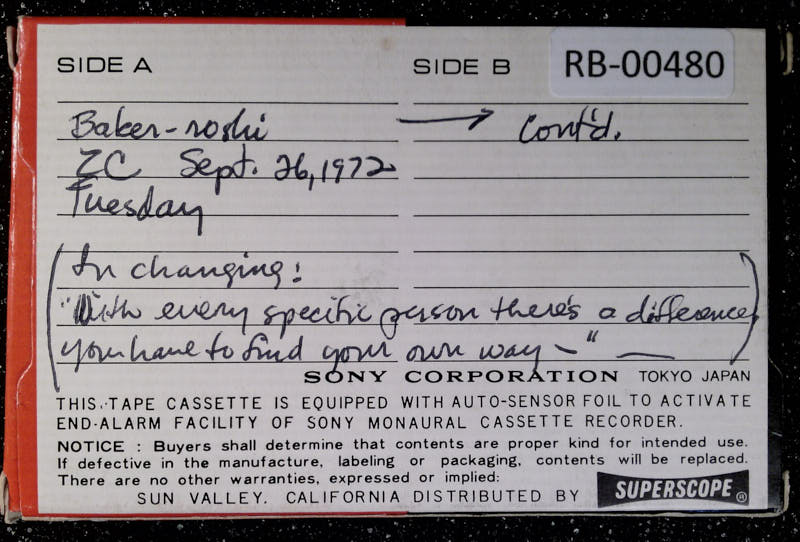 SIDE A SIDE B RB-00480
Baker-roshi → Cont'd.
ZC Sept. 26, 1972
Tuesday
(In changing:
"With every specific person there's a difference,
you have to find your own way —" —)
SONY CORPORATION TOKYO JAPAN
THIS TAPE CASSETTE IS EQUIPPED WITH AUTO-SENSOR FOIL TO ACTIVATE
END-ALARM FACILITY OF SONY MONAURAL CASSETTE RECORDER.
NOTICE : Buyers shall determine that contents are proper kind for intended use.
If defective in the manufacture, labeling or packaging, contents will be replaced.
There are no other warranties, expressed or implied:
SUN VALLEY. CALIFORNIA DISTRIBUTED BY SUPERSCOPE®